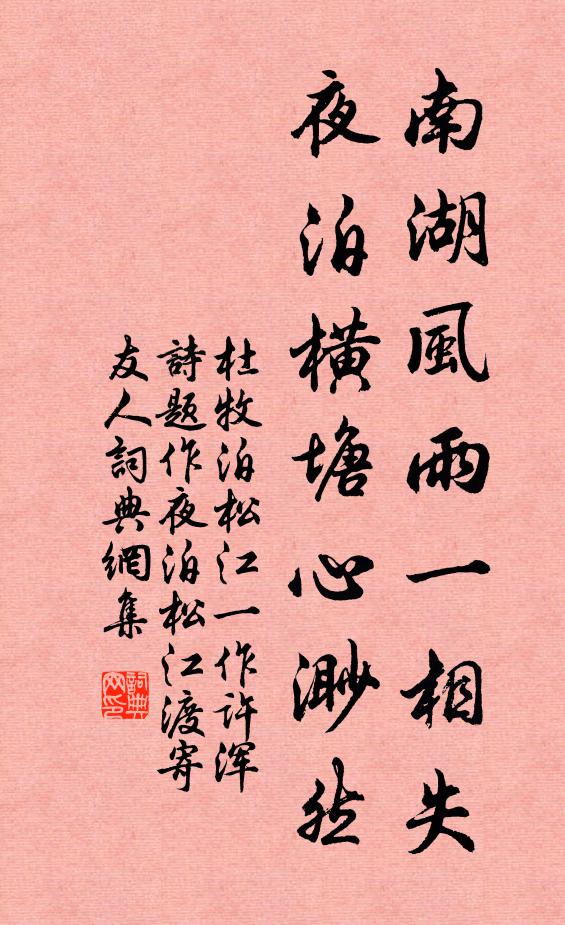 南湖風雨一相失
夜泊橫塘心渺然
杜牧泊松江一作許浑
詩題作夜泊松江渡寄
友人詞典網集
詞典
网印